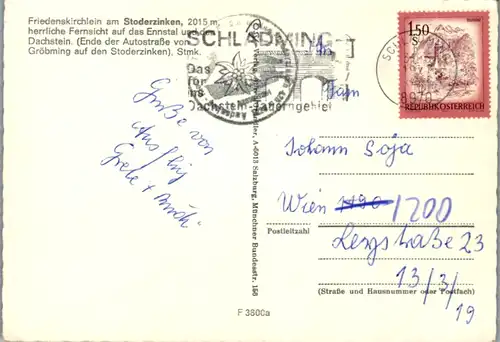 Friedenskirchlein am Stoderzinken, 2015 m,
herrliche Fernsicht auf das Ennstal und den
Dachstein. (Ende der Autostraße von
Gröbming auf den Stoderzinken), Stmk.
SCHLADMING
Das
Tor
ins
Dachstein-Tauerngebiet
1.50
S
REPUBLIK ÖSTERREICH
Grüße von
Ausflug
Grete +
A-5013 Salzburg, Münchner Bundesstr. 156
Johann Soja
Wien 1190 1200
Postleitzahl
23
13/3/19
(Straße und Hausnummer oder Postfach)
F 3800a